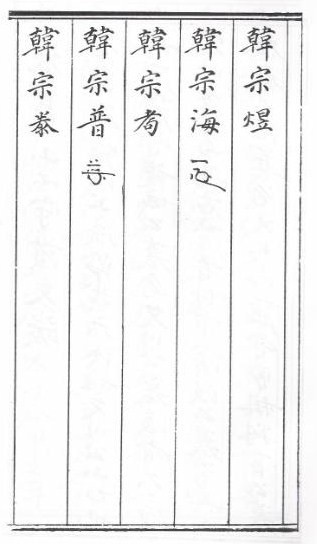 韓宗煜
韓宗海
韓宗
韓宗普
韓宗泰